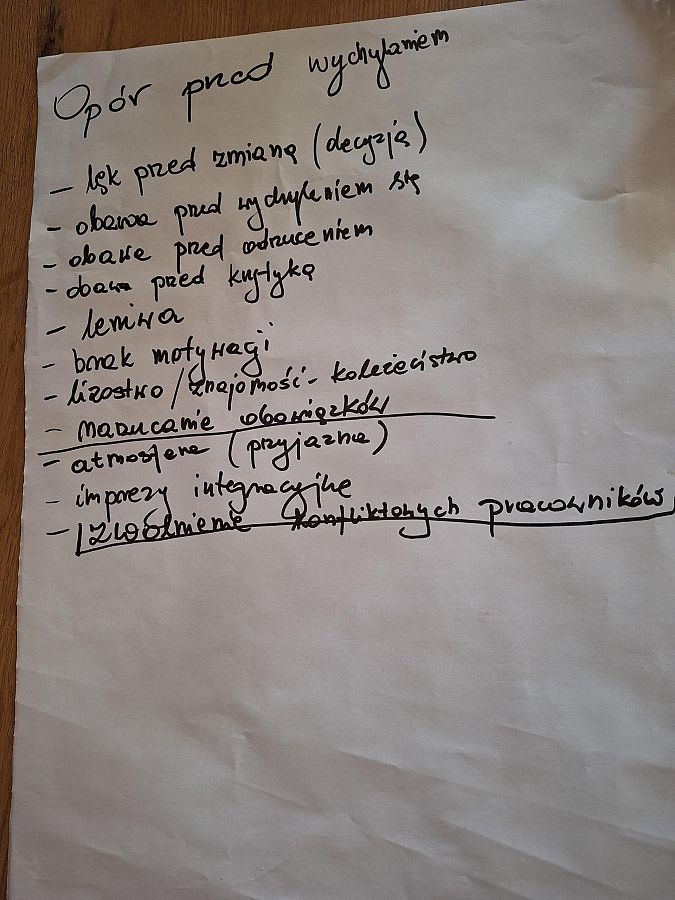 Opór przed wychylaniem
- lęk przed zmianą (decyzją)
- obawa przed wychyleniem się
- obawa przed odrzuceniem
- obawa przed krytyką
- leniwa
- brak motywacji
- lizostwo / znajomość - koleżeństwo
- narzucanie obowiązków
- atmosfera (przyjazna)
- imprezy integracyjne
- zwolnienie konfliktowych pracowników